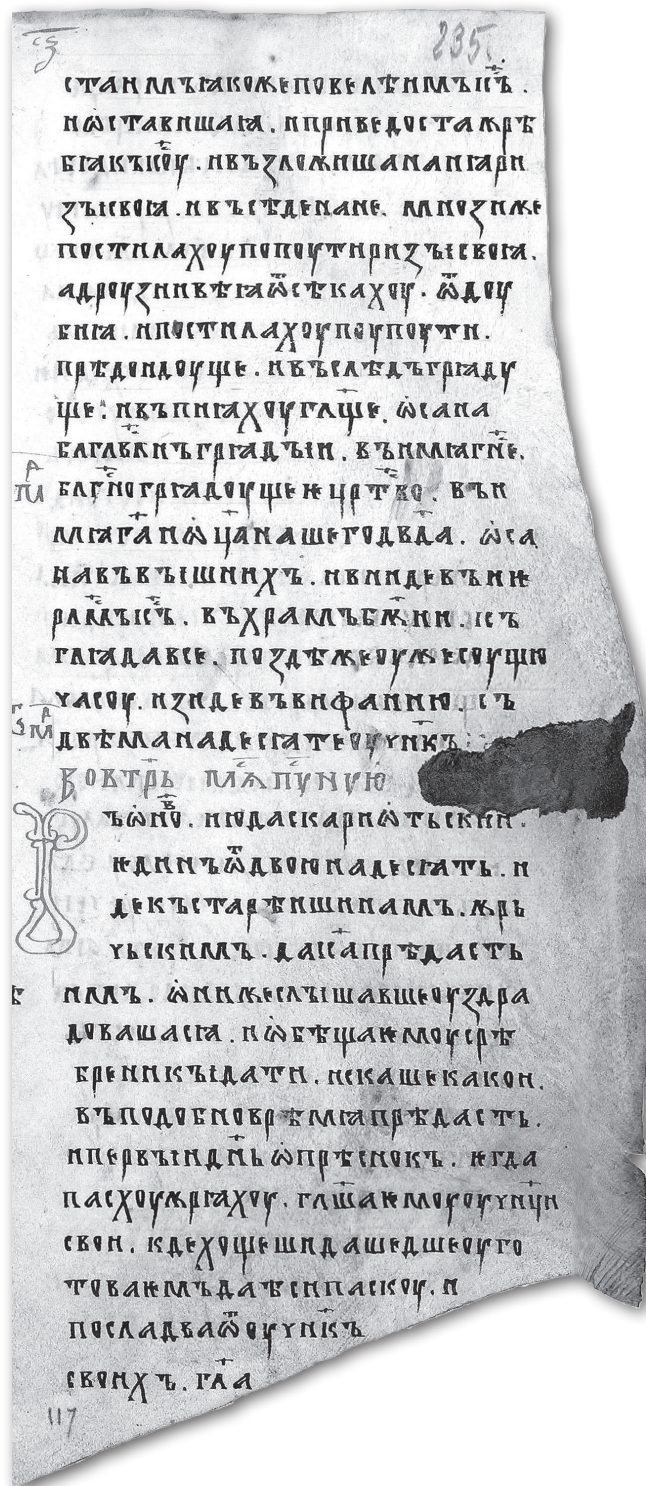 сꙃ 235.
стаимъꙗкожеповелѣимъі҃с҃ъ.
иѡставишаꙗ. иприведостажрѣ
бꙗкъі҃соу. ивъзложишананꙗри
зысвоꙗ. ивъсѣденане. мнозиже
постилахоупопоутиризысвоꙗ.
адроузиивѣꙗѿсѣкахоу. ѿдоу
биꙗ. ипостилахоупоупоути.
прѣдоидоуще. ивъслѣдъгрꙗду
ще: ивъпиꙗхоугл҃ще. ѡсана
блг҃влⷭ҇нъгрꙗдъіи. въимꙗгн҃е.
блг҃ногрꙗдоущеѥцр҃тво. въи
мꙗг҃аиѡц҃анашегодв҃да. ѡса
навъвъішнихъ. ивнидевъиѥ
рл҃мъі҃с҃ъ. въхрамъбж҃ии. ісъ
глꙗдавсе. поздѣжеоужесоущю
часоу. изидевъвифанию. съ
двѣманадесꙗтеоучн҃къ
вовтр҃ь мѧпучную
ъѡно҃. июдаскариѡтьскии.
ѥдинъѿдвоюнадесꙗть. и
декъстарѣишинамъ. жрь
чьскимъ. даі҃сапрѣдасть
имъ. ѡнижеслышавшеоуздра
довашасꙗ. иѡбѣщаѥмоусрѣ
бреникъідати. искашекакои.
въподобноврѣмꙗпрѣдасть.
ипервъіид҃нь ѡпрѣснокъ. ѥгда
пасхоужрꙗхоу. гл҃шаѥмоуоучн҃ци
свои. кдехощешидашедшеоуго
товаѥмъдаѣсипаскоу. и
посладваѿоучн҃къ
своихъ. гл҃а
117